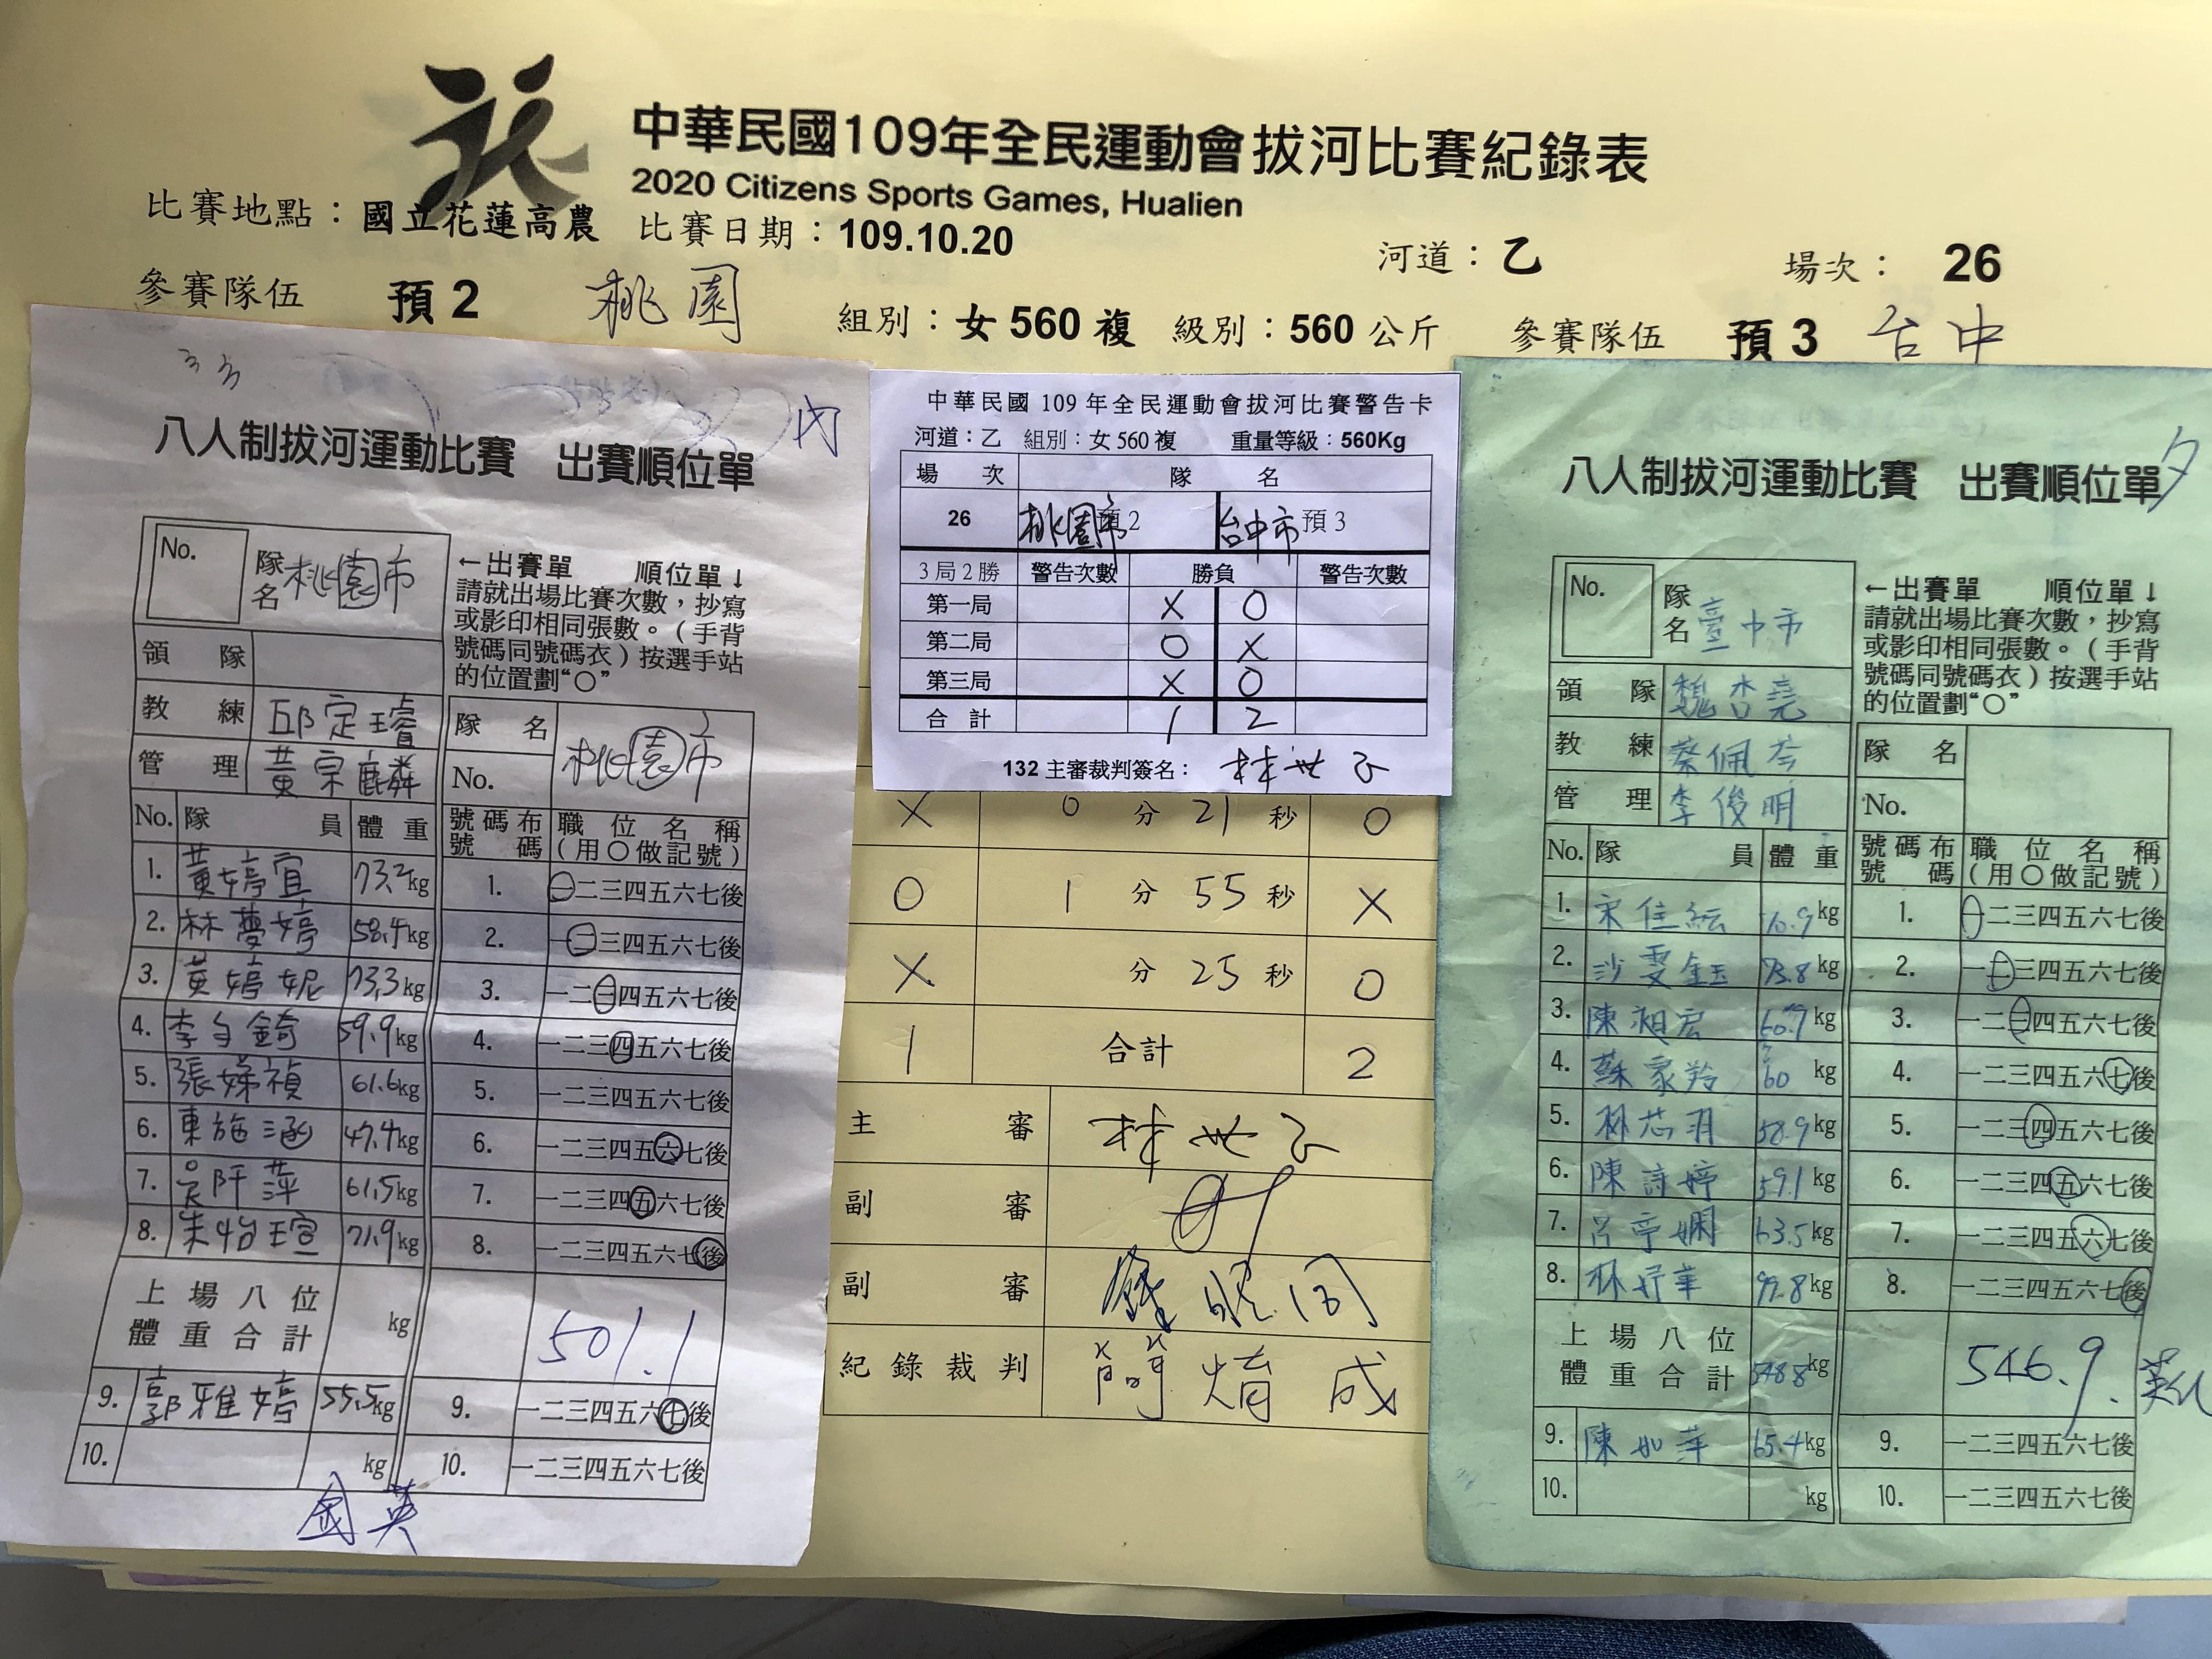 中華民國109年全民運動會拔河比賽紀錄表
2020 Citizens Sports Games, Hualien
比賽地點：國立花蓮高農 比賽日期：109.10.20 河道：乙 場次： 26
參賽隊伍 預2 桃園 組別：女560複 級別：560公斤 參賽隊伍 預3 台中
內
八人制拔河運動比賽 出賽順位單
No. 隊名 桃園市
←出賽單 順位單↓
請就出場比賽次數，抄寫
或影印相同張數。（手背
號碼同號碼衣）按選手站
的位置劃“○”
領隊
教練 邱定璿
管理 黃宗麟
隊名 桃園市
No.
No. 隊員 體重 號碼布號碼 職位名稱（用○做記號）
1. 黃婷宜 73.2kg 1. 一二三四五六七後
2. 林夢婷 58.4kg 2. 一二三四五六七後
3. 黃婷妮 73.3kg 3. 一二三四五六七後
4. 李 錡 59.9kg 4. 一二三四五六七後
5. 張娣禎 61.6kg 5. 一二三四五六七後
6. 施涵 47.4kg 6. 一二三四五六七後
7. 吳阡萍 61.5kg 7. 一二三四五六七後
8. 朱怡瑄 71.9kg 8. 一二三四五六七後
上場八位體重合計 kg 501.1
9. 郭雅婷 55.5kg 9. 一二三四五六七後
10. kg 10. 一二三四五六七後
國英
中華民國 109 年全民運動會拔河比賽警告卡
河道：乙 組別：女 560 複 重量等級：560Kg
場次 隊名
26 桃園市 預2 台中市 預3
3局2勝 警告次數 勝負 警告次數
第一局 X O
第二局 O X
第三局 X O
合計 1 2
132 主審裁判簽名： 林世
X 0 分 21 秒 O
O 1 分 55 秒 X
X 分 25 秒 O
1 合計 2
主審 林世
副審
副審
紀錄裁判 成
八人制拔河運動比賽 出賽順位單
No. 隊名 臺中市
←出賽單 順位單↓
請就出場比賽次數，抄寫
或影印相同張數。（手背
號碼同號碼衣）按選手站
的位置劃“○”
領隊 魏杏堯
教練 蔡佩岑
管理 李俊明
隊名
No.
No. 隊員 體重 號碼布號碼 職位名稱（用○做記號）
1. 宋佳紜 kg 1. 一二三四五六七後
2. 沙雯鈺 73.8kg 2. 一二三四五六七後
3. 陳 宏 60.7kg 3. 一二三四五六七後
4. 蘇家羚 60 kg 4. 一二三四五六七後
5. 林芯羽 58.9kg 5. 一二三四五六七後
6. 陳詩婷 59.1kg 6. 一二三四五六七後
7. 呂亭嫻 63.5kg 7. 一二三四五六七後
8. 林妤華 kg 8. 一二三四五六七後
上場八位體重合計 548.8kg 546.9
9. 陳如萍 65.4kg 9. 一二三四五六七後
10. kg 10. 一二三四五六七後